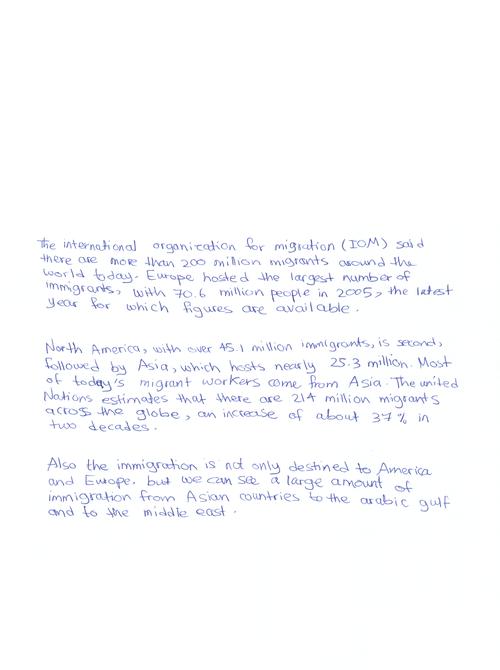 The international organization for migration (IOM) said
there are more than 200 million migrants around the
world today. Europe hosted the largest number of
immigrants, with 70.6 million people in 2005, the latest
year for which figures are available.
North America, with over 45.1 million immigrants, is second,
followed by Asia, which hosts nearly 25.3 million. Most
of today's migrant workers come from Asia. The united
Nations estimates that there are 214 million migrants
across the globe, an increase of about 37% in
two decades.
Also the immigration is not only destined to America
and Europe. but we can see a large amount of
immigration from Asian countries to the arabic gulf
and to the middle east.